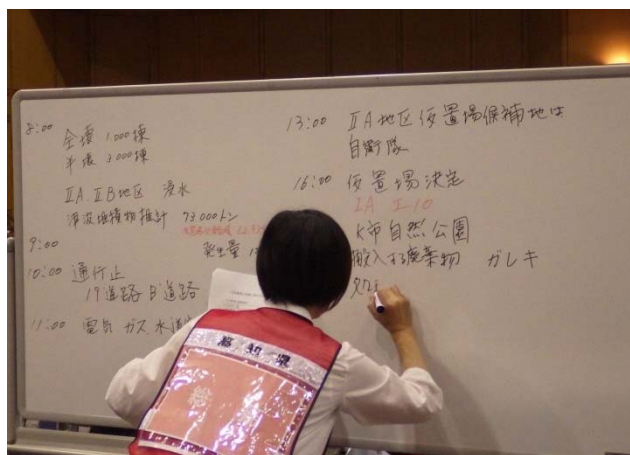 8:00
全壊 1,000棟
半壊 3,000棟
ⅡA.ⅡB地区 浸水
津波堆積物推計 73,000トン
発生量
9:00
10:00 通行止
17道路 日道路
11:00 電気 ガス 水道
13:00 ⅡA地区仮置場候補地は
自衛隊
16:00 仮置場決定
ⅠA Ⅰ-10
K市自然公園
搬入する廃棄物 ガレキ
高知県